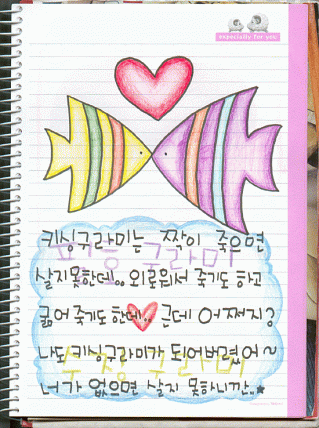 especially for you
키싱구라미는 짝이 죽으면
살지못한데.. 외로워서 죽기도 하고
굶어 죽기도 한데.. 근데 어쩌지?
나도 키싱구라미가 되어버렸어~
너가 없으면 살지 못하니깐..★